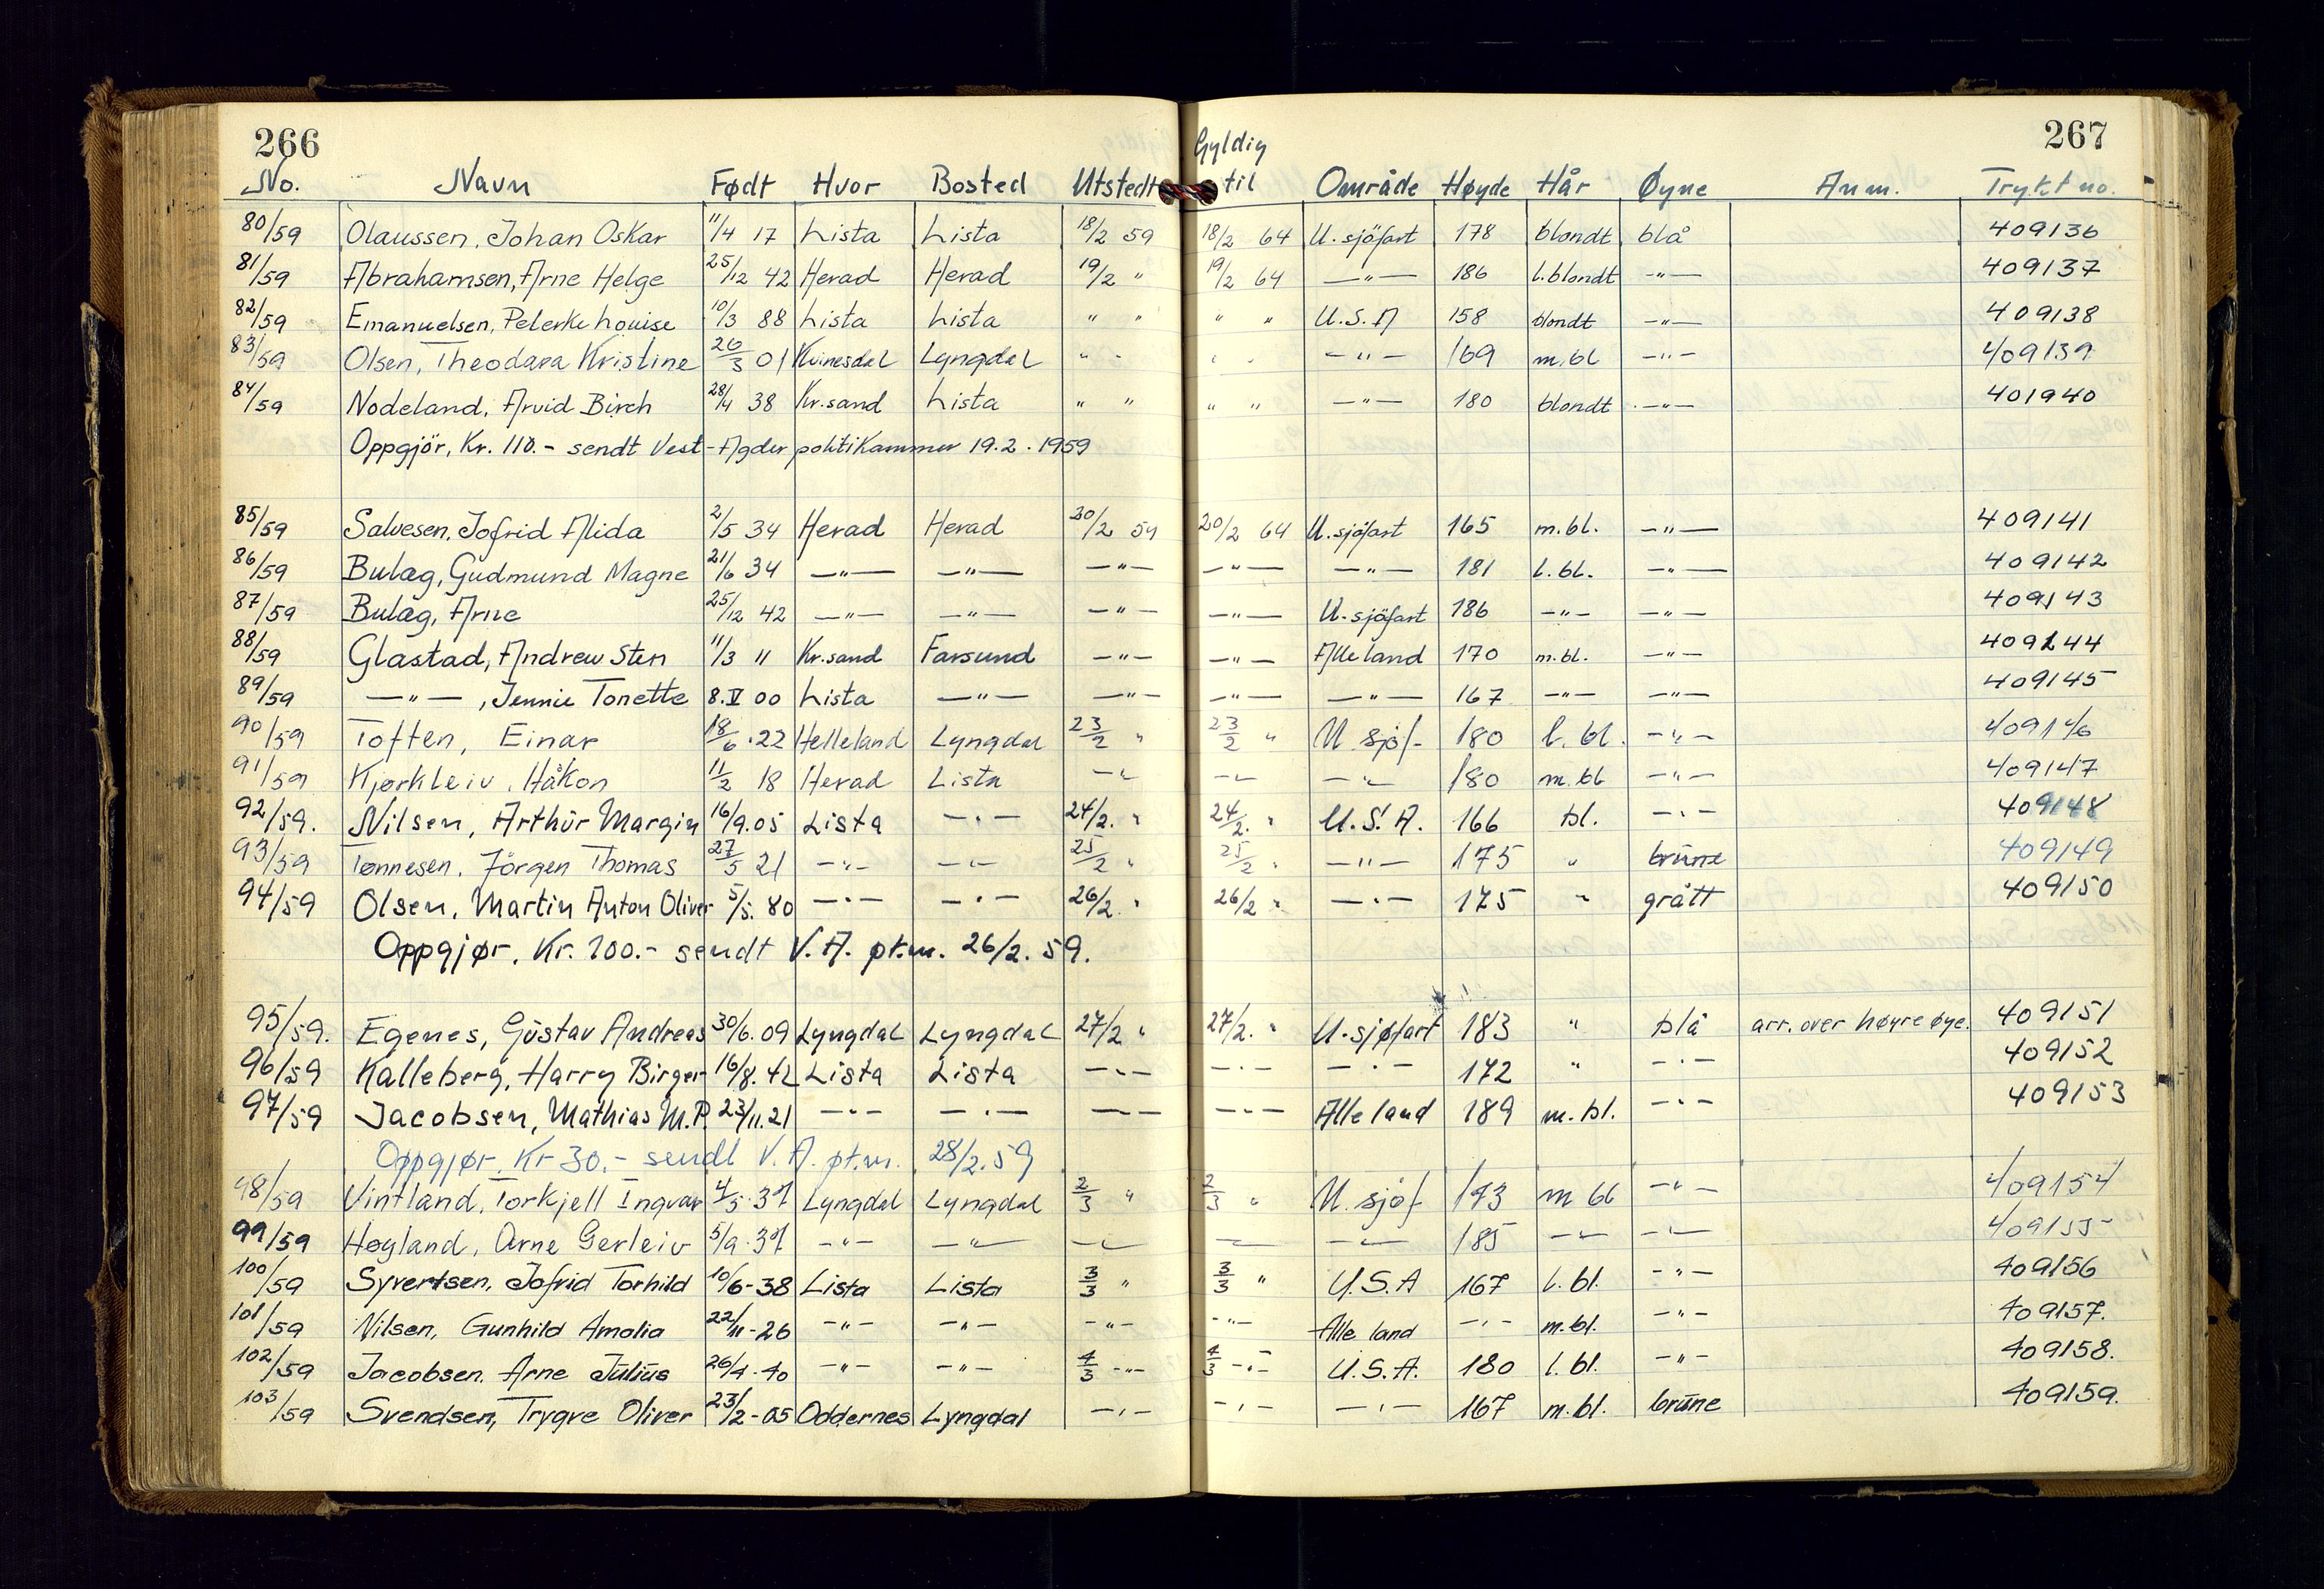 266
267
Gyldig
No. Navn Født Hvor Bosted Utstedt til Område Høyde Hår Øyne Anm. Trykt no.
80/59 Olaussen, Johan Oskar 11/4 17 Lista Lista 18/2 59 18/2 64 U. sjöfart 178 blondt blå 409136
81/59 Abrahamsen, Arne Helge 25/12 42 Herad Herad 19/2 " 19/2 64 —"— 186 l. blondt —"— 409137
82/59 Emanuelsen, Peterke Louise 10/3 88 Lista Lista " " " " U.S.A 158 blondt —"— 409138
83/59 Olsen, Theodara Kristine 26/3 01 Kvinesdal Lyngdal " " " " —"— 169 m.bl —"— 409139
84/59 Nodeland, Arvid Birch 28/4 38 Kr.sand Lista " " " " —"— 180 blondt —"— 401940
Oppgjör, Kr. 110.- sendt Vest-Agder politikammer 19.2.1959
85/59 Salvesen, Jofrid Alida 2/5 34 Herad Herad 20/2 59 20/2 64 U. sjöfart 165 m.bl. —"— 409141
86/59 Bulæg, Gudmund Magne 21/6 34 —"— —"— —"— —"— —"— 181 l. bl. —"— 409142
87/59 Bulæg, Arne 25/12 42 —"— —"— —"— —"— U. sjöfart 186 —"— —"— 409143
88/59 Glastad, Andrew Sten 11/3 11 Kr.sand Farsund —"— —"— Alle land 170 m.bl. —"— 409144
89/59 —"—, Jennie Tonette 8.V 00 Lista —"— —"— —"— —"— 167 —"— —"— 409145
90/59 Toften, Einar 18/6.22 Helleland Lyngdal 23/2 " 23/2 " U sjøf. 180 l. bl. —"— 409146
91/59 Kjørkleiv, Håkon 11/2 18 Herad Lista —"— —"— —"— 180 m.bl —"— 409147
92/59. Nilsen, Arthur Margin 16/9.05 Lista —"— 24/2. " 24/2. " U.S.A. 166 bl. —"— 409148
93/59 Tønnesen, Jörgen Thomas 27/5 21 —"— —"— 25/2 " 25/2 " —"— 175 " brune 409149
94/59 Olsen, Martin Anton Oliver 5/5. 80 —"— —"— 26/2. " 26/2 " —"— 175 " grått 409150
Oppgjør, Kr. 100.- sendt V.A. pt.m. 26/2. 59.
95/59. Egenes, Gustav Andreas 30/6.09 Lyngdal Lyngdal 27/2 " 27/2. " U. sjøfart 183 " blå arr. over høyre øye. 409151
96/59 Kalleberg, Harry Birger 16/8.42 Lista Lista —"— —"— —"— 172 " —"— 409152
97/59 Jacobsen, Mathias M.P. 23/11.21 —"— —"— —"— —"— Alle land 189 m. bl. —"— 409153
Oppgjør, Kr 30.- sendt V.A. pt.m. 28/2.59
98/59 Vintland, Torkjell Ingvar 4/5.37 Lyngdal Lyngdal 2/3 " 2/3 " U. sjøf 173 m bl —"— 409154
99/59 Høyland, Arne Gerleiv 5/9.37 —"— —"— —"— —"— —"— 185 —"— —"— 409155
100/59 Syvertsen, Jofrid Torhild 10/6-38 Lista Lista 3/3 " 3/3 " U.S.A 167 l. bl. —"— 409156
101/59 Nilsen, Gunhild Amalia 22/11-26 —"— —"— —"— —"— Alle land —"— m.bl. —"— 409157.
102/59 Jacobsen, Arne Julius 26/4.40 —"— —"— 4/3 —"— 4/3 —"— U.S.A. 180 l. bl. —"— 409158.
103/59 Svendsen, Trygve Oliver 23/2-05 Oddernes Lyngdal —"— —"— —"— 167 m.bl. brune 409159.